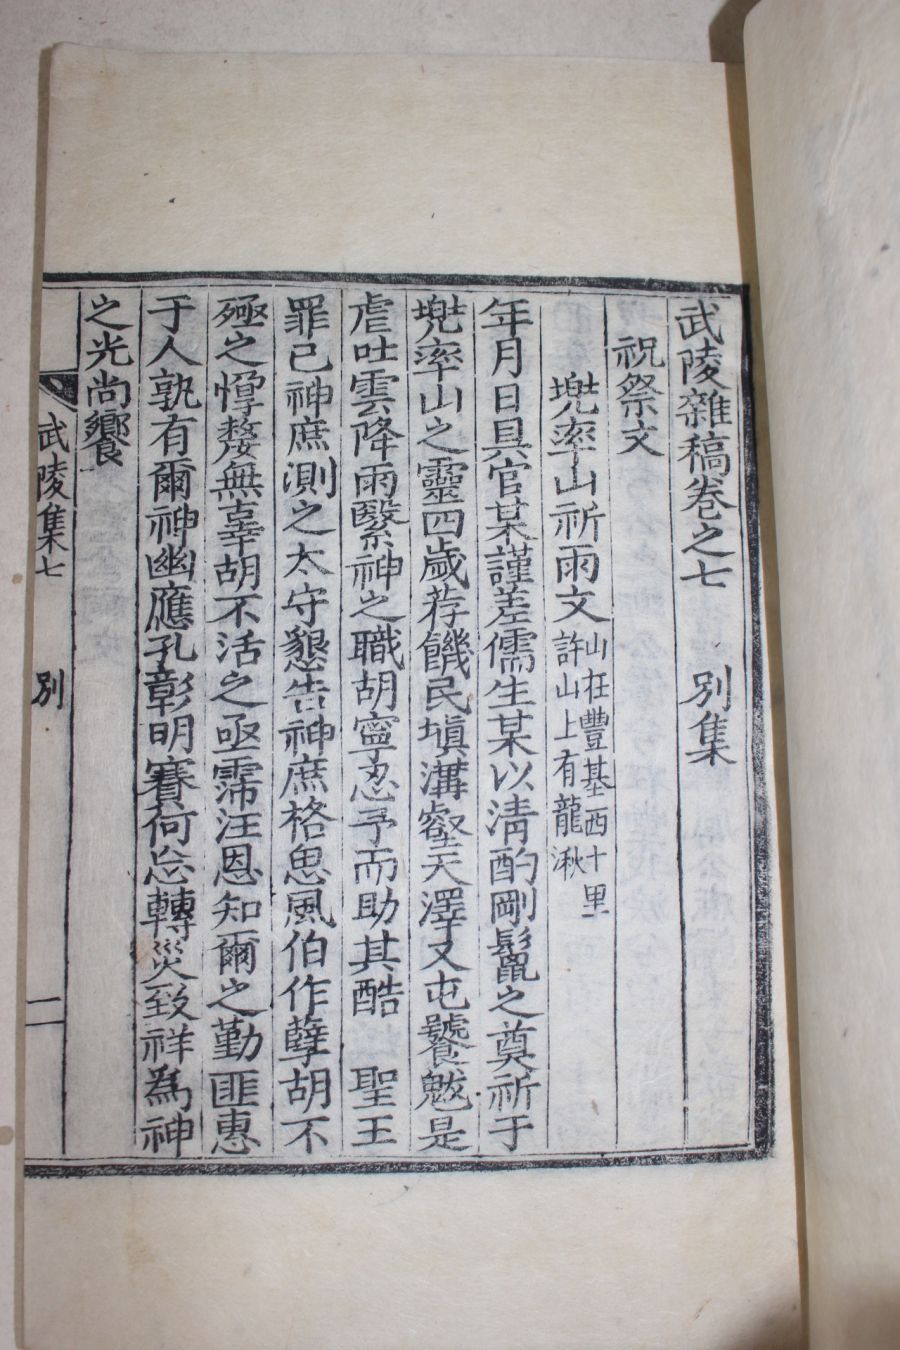 武陵雜稿卷之七 別集
祝祭文
兠率山祈雨文 山在豐基西十里
許山上有龍湫
年月日具官某謹差儒生某以淸酌剛鬣之奠祈于
兠率山之靈四歲荐饑民塡溝壑天澤又屯饕魃是
虐吐雲降雨繄神之職胡寧忍予而助其酷 聖王
罪己神庶測之太守懇告神庶格思風伯作孽胡不
殛之惸嫠無辜胡不活之亟霈汪恩知爾之勤匪惠
于人孰有爾神幽應孔彰明賽何忘轉災致祥為神
之光尚饗
武陵集七 別 一